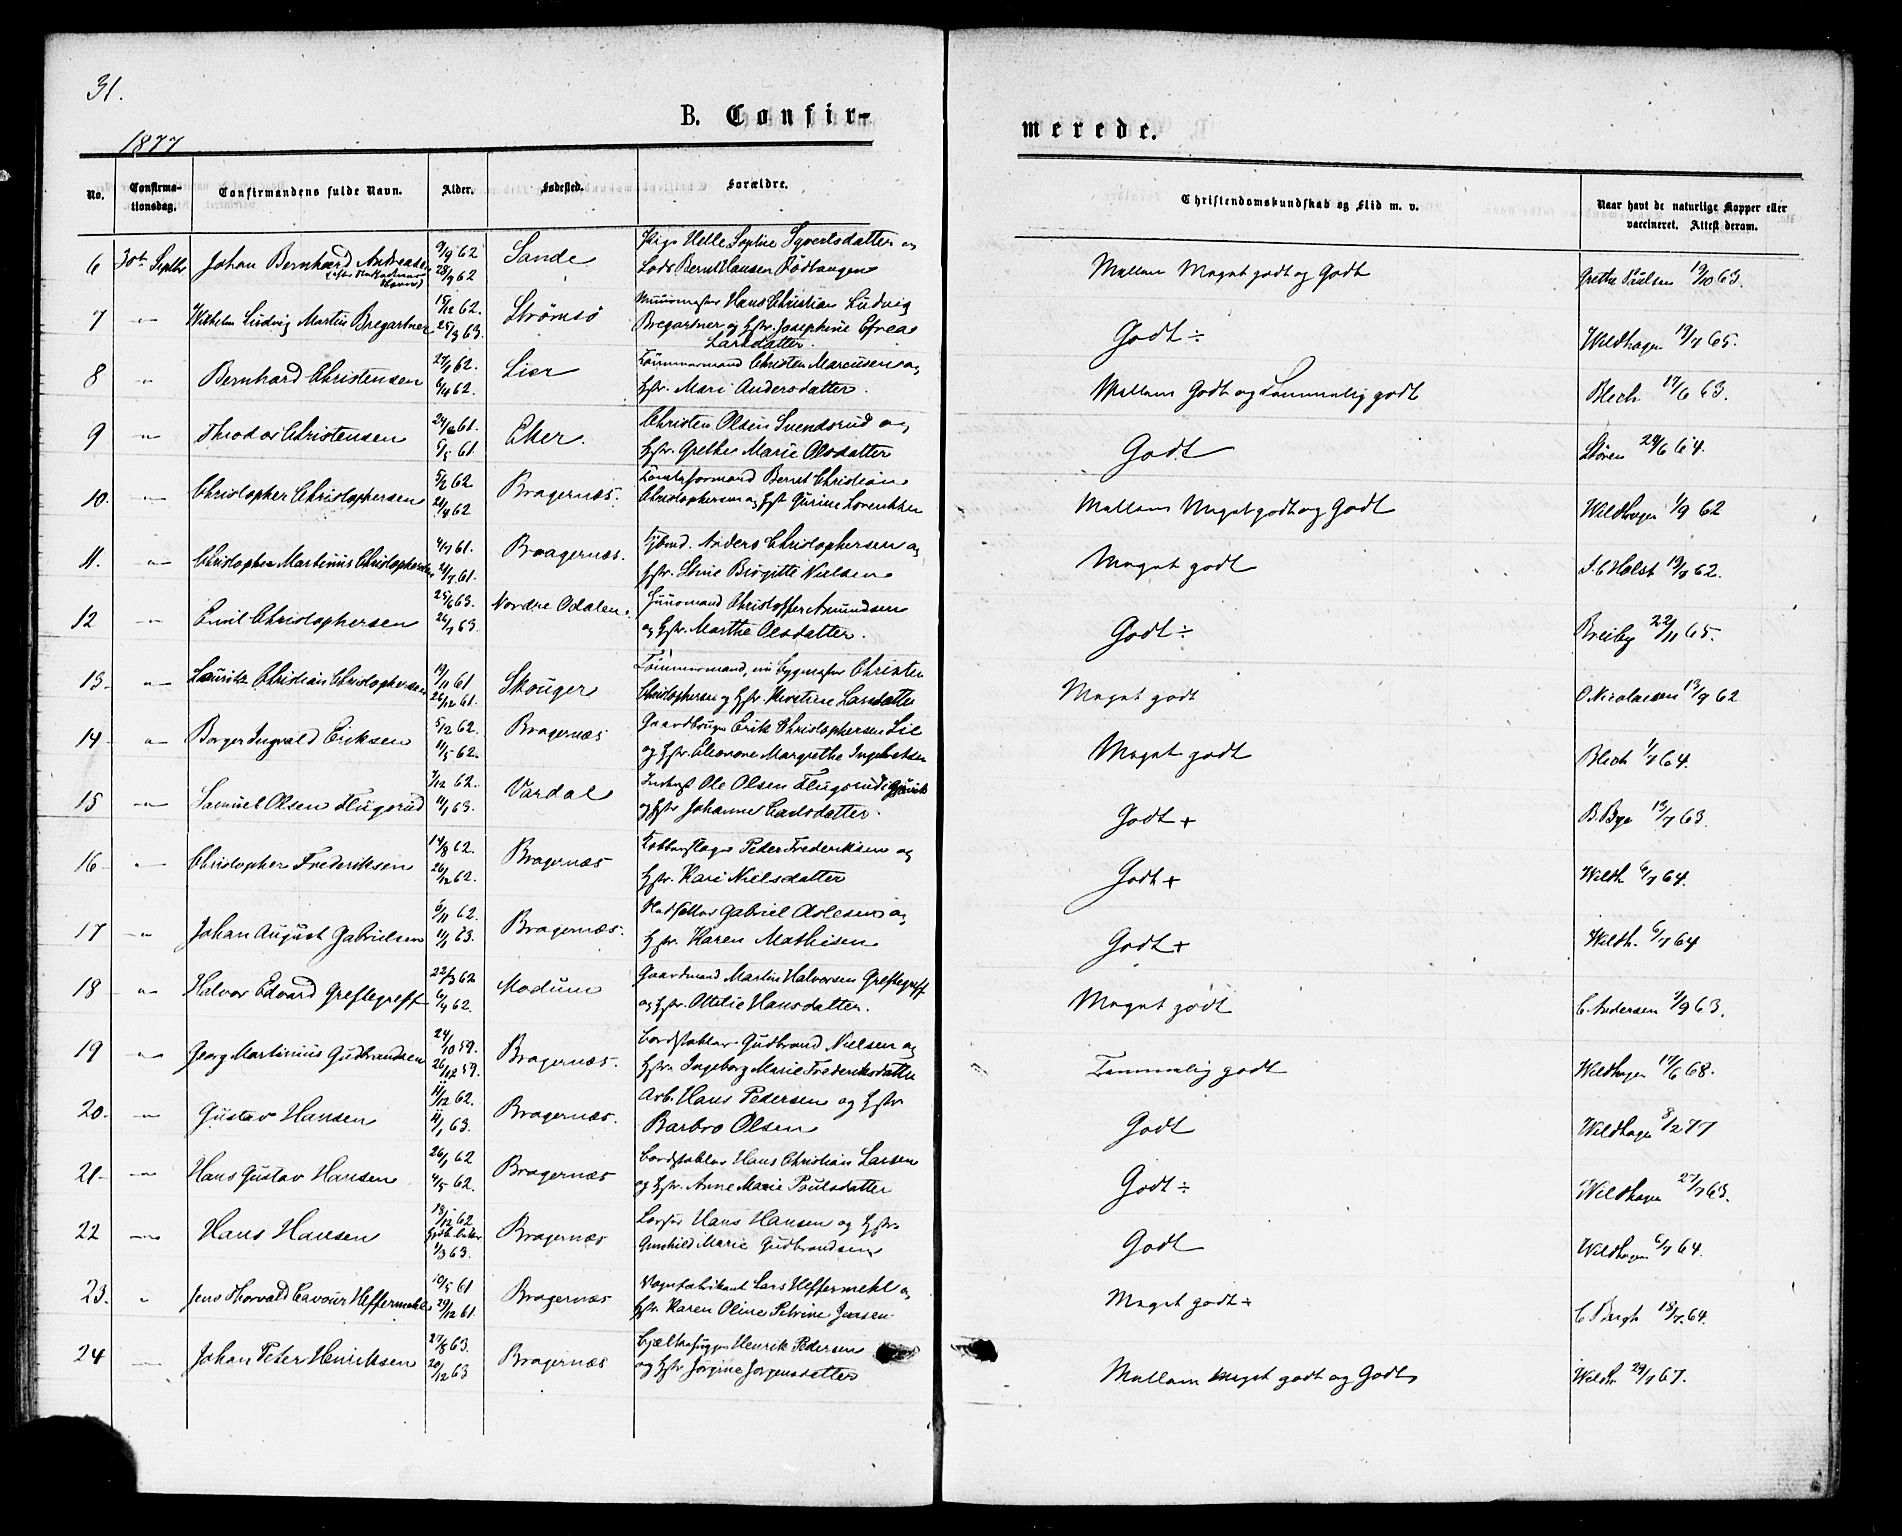 31.
B. Confir-
merede.
1877
No.
Confirma-
tionsdag.
Confirmandens fulde Navn.
Alder.
Fødested.
Forældre.
Christendomskundskab og Flid m. v.
Naar havt de naturlige Kopper eller
vaccineret. Attest derom.
6 30te Septbr Johan Bernhard Andreas 9/9 62 Sande Pige Helle Sophie Syvertsdatter og
28/9 62 Lods Bernt Hansen Rødtangen
Mellem Meget godt og Godt
Grethe Paulsen 19/10 63.
7 " Wilhelm Ludvig Martin Bregartner 15/12 62. Strømsø Muurmester Hans Christian Ludvig
25/3 63. Bregartner og Hstr. Josephine
Larsdatter.
Godt ÷
Wildhagen 19/7 65.
8 " Bernhard Christensen 27/1 62. Lier Tømmermand Christen Marcusen og
6/4 62. Hstr. Mari Andersdatter.
Mellem Godt og Temmelig godt
Blech 17/6 63.
9 " Theodor Christensen 61. Eker. Christen Olsen Svendsrud og
5/5 61. Hstr. Grethe Marie Olsdatter
Godt
Støren 29/6 64.
10. " Christopher Christophersen 5/2 62 Bragernæs. Bernt Christian
21/4 62 Christophersen og Hstr Gurine Lorentzen
Mellem Meget godt og Godt
Wildhagen 1/9 62
11. " Christopher Martinius Christophersen 4/7 61. Bragernæs. Anders Christophersen og
61. Hstr. Stine Birgitte Nielsen
Meget godt
Holst 62.
12 " Emil Christophersen 25/6 63. Nordre Odalen. Huusmand Christoffer Amundsen
26/7 63. og Hstr. Marthe Olsdatter.
Godt ÷
Breiby 22/11 65.
13. " Lauritz Christian Christophersen 19/11 61 Skouger Tømmermand, nu Bygmester Christen
26/12 61. Christophersen og Hstr Kirstine Larsdatter
Meget godt
O. Nicolaisen 13/9 62
14 " Borger Ingvald Eriksen 5/2 62. Bragernæs Gaardbruger Erik Christophersen Lie
11/5 62. og Hstr. Eleonore Margrethe Ingebretsen
Meget godt
Blech 1/7 64.
15 " Samuel Olsen Flugsrud 7/12 62. Vardal Ole Olsen Flugsrud Gjøvik
63. og Hstr Johanne Carlsdatter.
Godt +
B. Bye 13/7 63.
16 " Christopher Frederiksen 14/8 62. Bragernæs Peder Frederiksen og
26/12 62. Hstr. Kari Nielsdatter
Godt +
Wildh 6/7 64.
17 " Johan August Gabrielsen 6/11 62. Bragernæs. Gabriel Aslesen og
63. Hstr. Karen Mathisen
Godt +
Wildh. 6/7 64
18 " Halvor Edvard Greftegreff 22/3 62 Modum Gaardmand Martin Halvorsen Greftegreff
6/4 62. og Hstr. Ottilie Hansdatter.
Meget godt
C. Andersen 63.
19 " Georg Martinius Gudbrandsen 24/10 59. Bragernæs. Bordstabler Gudbrand Nielsen og
26/12 59. Hstr. Ingeborg Marie Frederiksdatter
Temmelig godt
Wildhagen 17/6 68.
20. " Gustav Hansen 11/12 62. Bragernæs. Arb. Hans Pedersen og Hstr
63. Barbro Olsen
Godt
Wildhagen 8/2 77
21. " Hans Gustav Hansen 26/1 62 Bragernæs Bordstabler Hans Christian Larsen
4/5 62. og Hstr. Anne Marie Poulsdatter
Godt ÷
Wildhagen 27/7 63.
22 " Hans Hansen 13/12 62 Bragernæs Hans Hansen og Hstr.
1/3 63. Gunhild Marie Gudbrandsen
Godt
Wildhagen 6/7 64.
23. " Jens Thorvald Cavour Heffermehl 10/5 61 Bragernæs Vognfabrikant Lars Heffermehl og
29/12 61 Hstr Karen Oline Petrine Jensen
Meget godt ÷
C Bergh 18/7 64.
24 " Johan Peter Henriksen 27/8 63. Bragernæs Henrik Pedersen
20/12 63 og Hstr Jørgine Jørgensdatter
Mellem Meget godt og Godt
Wildh 29/7 67.